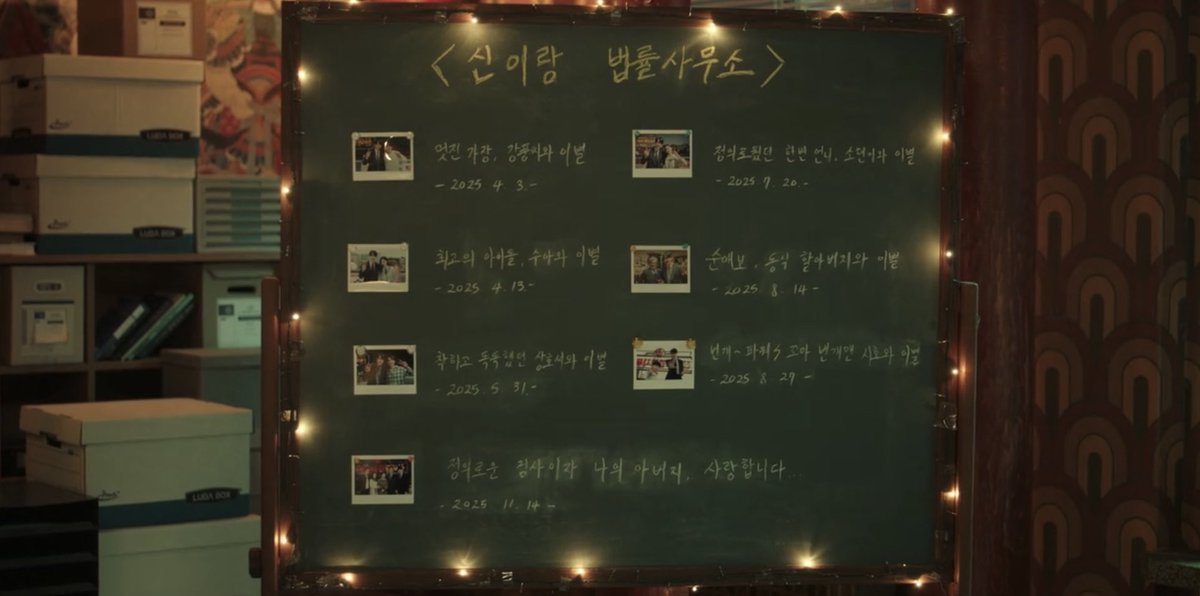 <신이랑 법률사무소>
멋진 가장, 강풍씨와 이별
- 2025. 4. 3. -
최고의 아이돌, 수아와 이별
- 2025. 4. 13. -
착하고 똑똑했던 상호씨와 이별
- 2025. 5. 31. -
정의로웠던 한변 언니, 소연이와 이별
- 2025. 7. 20. -
순애보, 동식 할아버지와 이별
- 2025. 8. 14 -
번개~ 파워 꼬마 번개맨 시호와 이별
- 2025 8. 27 -
정의로운 검사이자 나의 아버지, 사랑합니다...
- 2025 11. 14 -
LUDA BOX
LUDA BOX
LUDA BOX